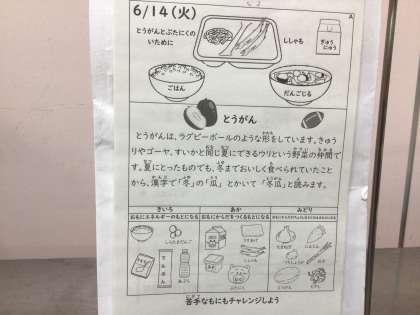 6/14(火)
とうがんとぶたにくの
いために
ししゃも
ぎゅう
にゅう
ごはん
だんごじる
とうがん
とうがんは、ラグビーボールのような形をしています。きゅう
りやゴーヤ、すいかと同じ夏にできるウリという野菜の仲間で
す。夏にとったものでも、冬までおいしく食べられていたこと
から、漢字で「冬」の「瓜」とかいて「冬瓜」と読みます。
きいろ
あか
みどり
おもにエネルギーのもとになる
おもにからだをつくるもとになる
しらたまだんご
ししゃも
でんぷん
あぶら
ぶたにく
にんじん
とうがん
苦手なものにもチャレンジしよう